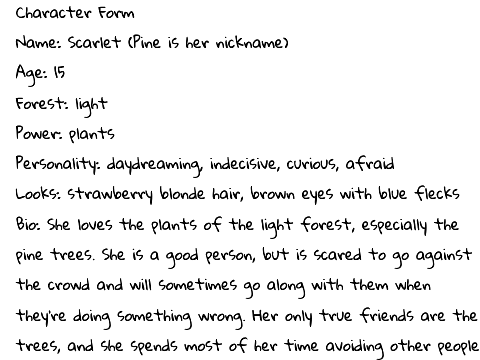 Character Form
Name: Scarlet (Pine is her nickname)
Age: 15
Forest: light
Power: plants
Personality: daydreaming, indecisive, curious, afraid
Looks: strawberry blonde hair, brown eyes with blue flecks
Bio: She loves the plants of the light forest, especially the
pine trees. She is a good person, but is scared to go against
the crowd and will sometimes go along with them when
they're doing something wrong. Her only true friends are the
trees, and she spends most of her time avoiding other people